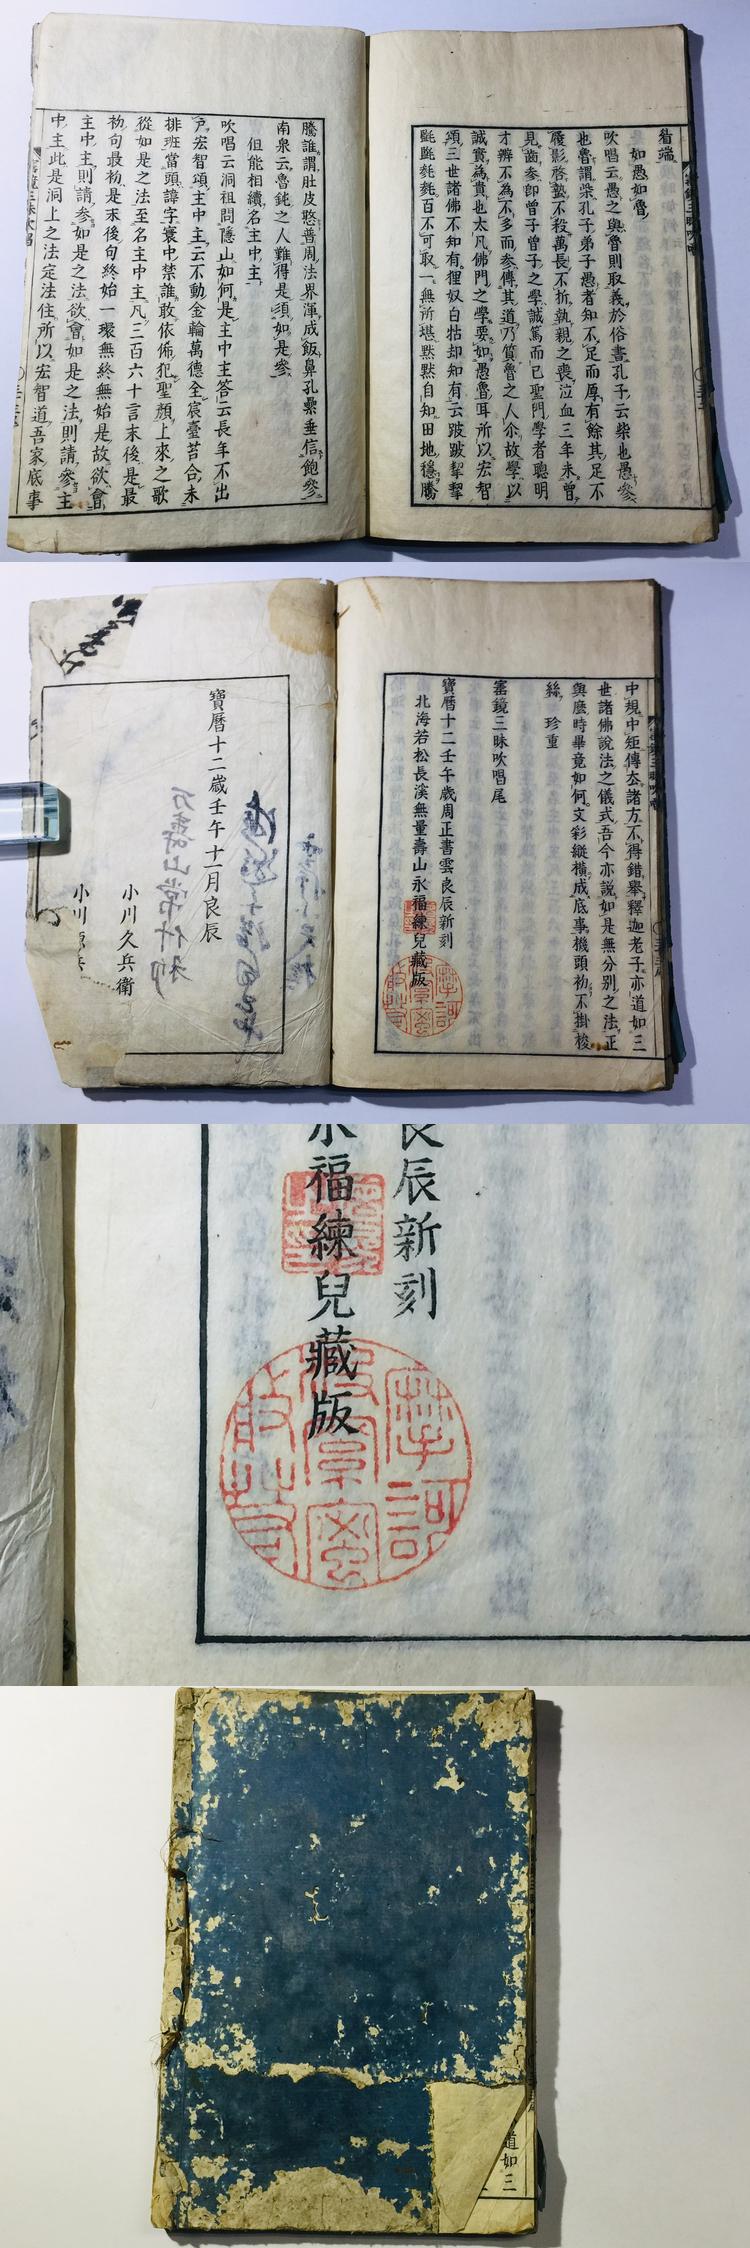 旨端
如愚如魯
吹唱云愚之與魯則取義於俗書孔子云柴也愚參
也魯謂柴孔子弟子愚者知不足而厚有餘其足不
履影啓蟄不殺萬長不折執親之喪泣血三年未曾
見齒參卽曾子曾子之學誠篤而已聖門學者聰明
才辨不為不多而參傳其道乃質魯之人尒故學以
誠實為貴也大凡佛門之學要如愚魯耳所以宏智
頌三世諸佛不知有狸奴白牯却知有云跛跛挈挈
毿毿百不可取一無所堪默默自知田地穩騰
騰誰謂肚皮憨普周法界渾成飯鼻孔纍垂信飽參
南泉云魯鈍之人難得是須如是參
但能相續名主中主
吹唱云洞祖問隱山如何是主中主答云長年不出
戶宏智頌主中主云不動金輪萬德全宸臺苔合未
排班當頭諱字寰中禁誰敢依俙犯聖顏上來之歌
從如是之法至名主中主凡三百六十言末後是最
初句最初是末後句終始一環無終無始是故欲會
主中主則請參如是之法欲會如是之法則請參主
中主此是洞上之法定法住所以宏智道吾家底事
中規中矩傳去諸方不得錯舉釋迦老子亦道如三
世諸佛說法之儀式吾今亦說如是無分別之法正
與麼時畢竟如何文彩縱橫成底事機頭初不掛梭
絲 珍重
寶鏡三昧吹唱尾
寶曆十二壬午歲周正書雲良辰新刻
北海若松長溪無量壽山永福練兒藏版
寶曆十二歲壬午十一月良辰
小川久兵衛
小川源兵
良辰新刻
永福練兒藏版
摩訶
般若
道如三